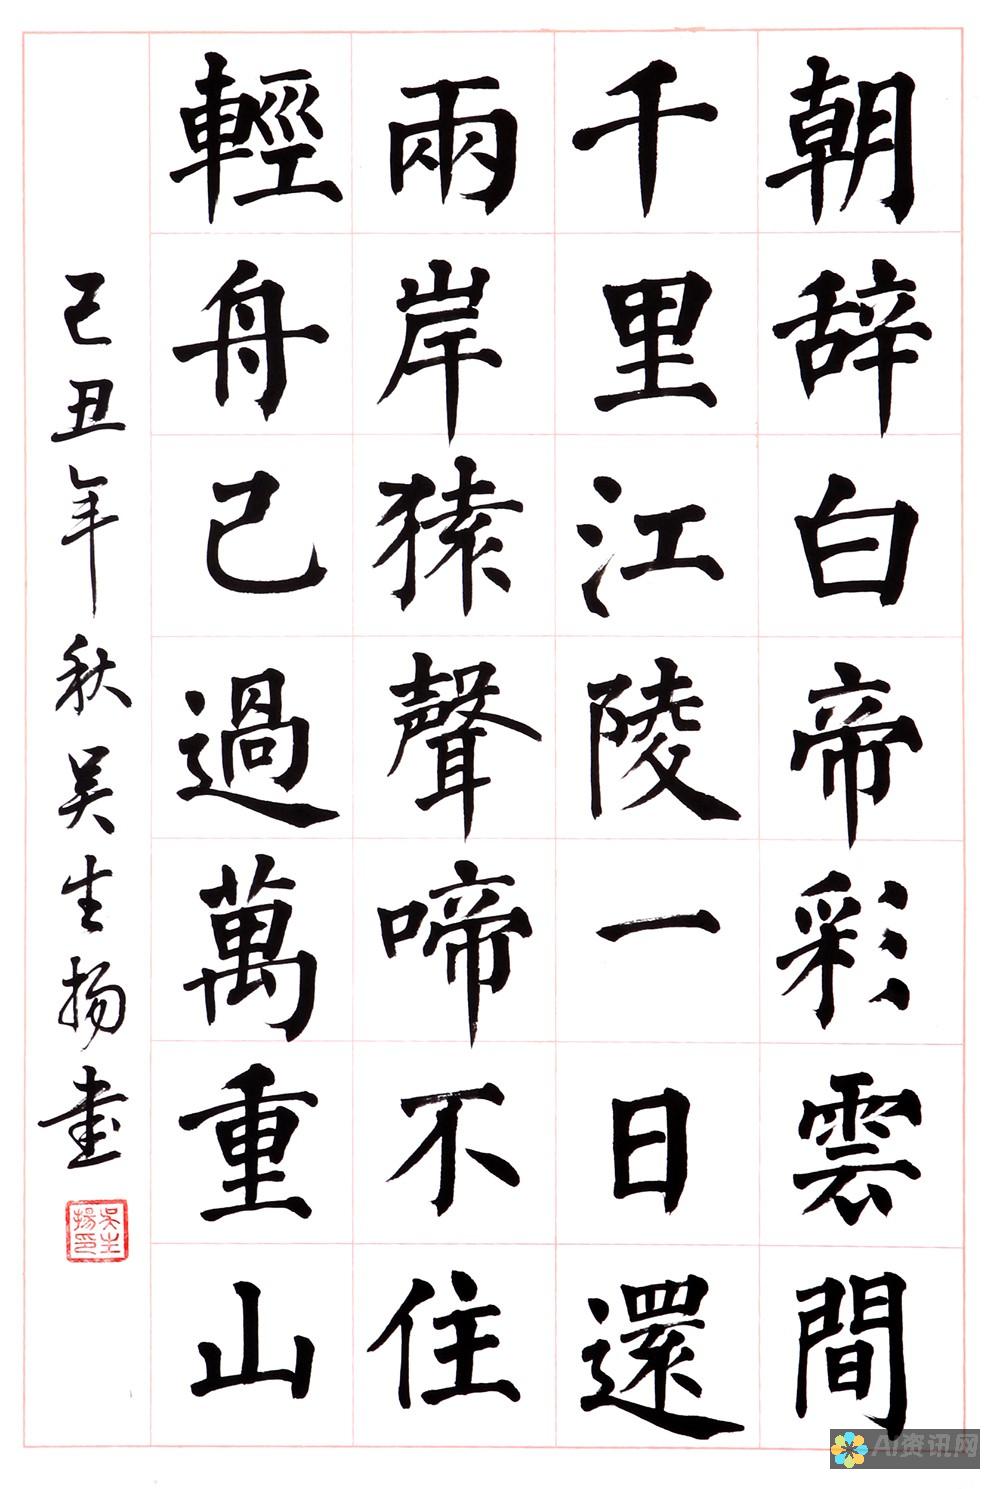 朝辞白帝彩雲間
千里江陵一日還
兩岸猿聲啼不住
輕舟已過萬重山
己丑年秋吴生扬书
吳生揚印
AI资讯网